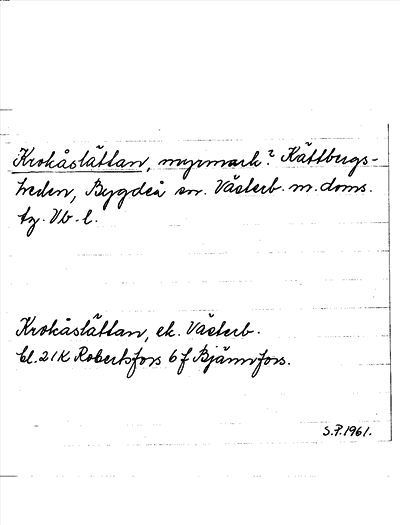 Krokåslåttan, myrmark? Kåttbergs-
heden, Bygdeå sn. Västerb. m. doms.
tg. Vb. l.
Krokåslåttan, ek. Västerb.
bl. 21K Robertsfors 6 f Bjännfors.
S.F. 1961.